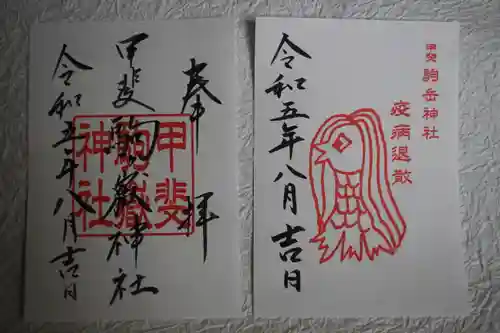 奉拝
甲斐駒ヶ嶽神社
甲斐
駒嶽
神社
令和五年八月吉日
甲斐駒岳神社
疫病退散
令和五年八月吉日